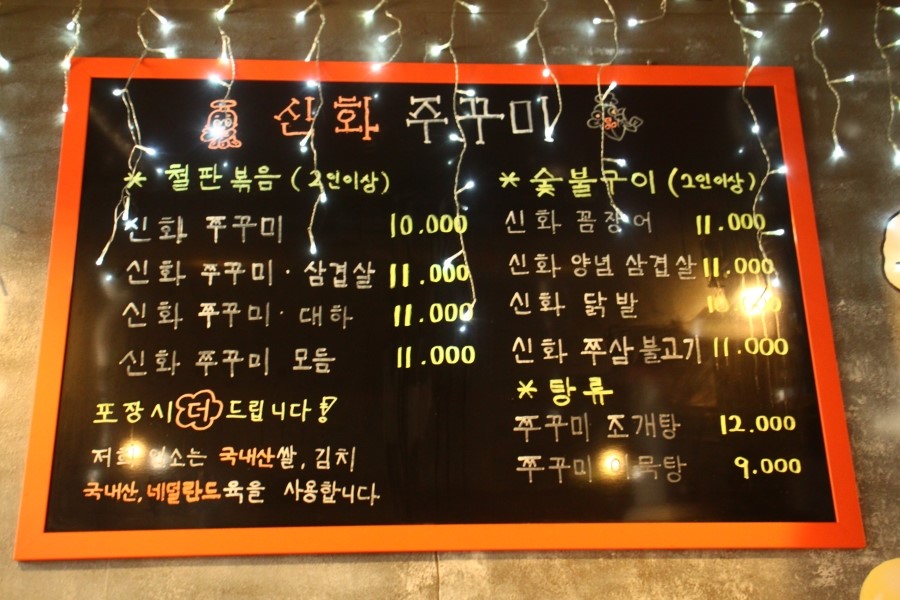 신화 쭈꾸미
* 철판볶음 (2인이상)
신화 쭈꾸미 10.000
신화 쭈꾸미·삼겹살 11.000
신화 쭈꾸미·대하 11.000
신화 쭈꾸미 모듬 11.000
포장시 더 드립니다!
저희 업소는 국내산쌀, 김치
국내산, 네덜란드육을 사용합니다
* 숯불구이 (2인이상)
신화 꼼장어 11.000
신화 양념 삼겹살 11.000
신화 닭발
신화 쭈삼불고기 11.000
* 탕류
쭈꾸미 조개탕 12.000
쭈꾸미 9.000